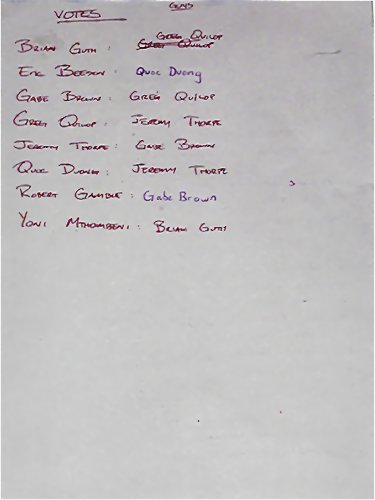 GENS
VOTES
Greg Quilop
Brian Guth: Greg Quilop
Eric Beeson: Quoc Duong
Gabe Brown: Greg Quilop
Greg Quilop: Jeremy Thorpe
Jeremy Thorpe: Gabe Brown
Quoc Duong: Jeremy Thorpe
Robert Gamble: Gabe Brown
Yoni Mthombeni: Brian Guth